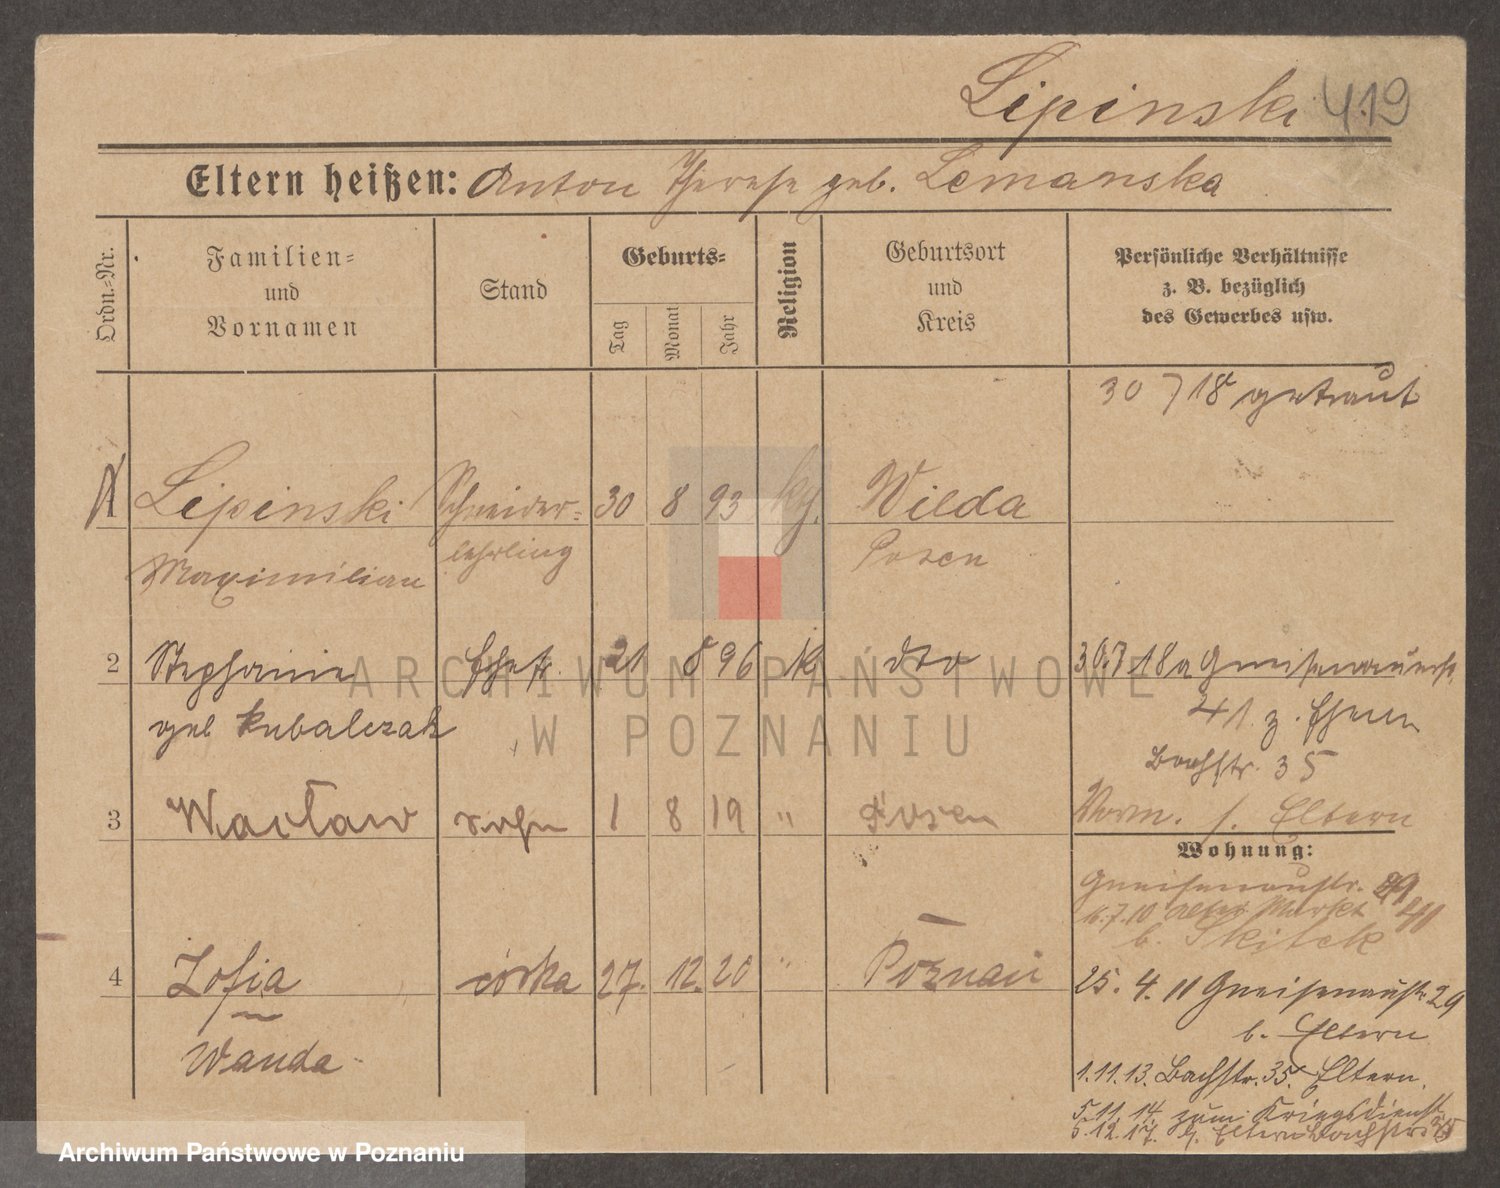 Lipinski 419
Eltern heißen: Anton Therese geb. Lemanska
Ordn.-Nr.
Familien-
und
Vornamen
Stand
Geburts-
Tag
Monat
Jahr
Religion
Geburtsort
und
Kreis
Persönliche Verhältnisse
z. B. bezüglich
des Gewerbes usw.
30 7 18 getraut
Lipinski Schneider- 30 8 93 kg. Wilda
Maximilian lehrling Posen
2 Stephanie Ehefr. 21 8 96 k dto 30.7 18 a Gneisenauerstr.
geb Kubalczak 41. z. Ehem
Bachstr. 35
3 Wacław Sohn 1 8 19 " Posen Worm. s. Eltern
Wohnung:
Gneisenaustr. 29
16.7.10 Alter Markt
b. Skitek
4 Zofia córka 27. 12. 20 " Poznań 25. 4. 11 Gneisenaustr. 29
b. Eltern
Wanda 1.11.13. Bachstr. 35. Eltern.
5.11.14. zum Kriegsdienst
5.12.17. Eltern Bachstr. 35
ARCHIWUM PAŃSTWOWE
W POZNANIU
Archiwum Państwowe w Poznaniu